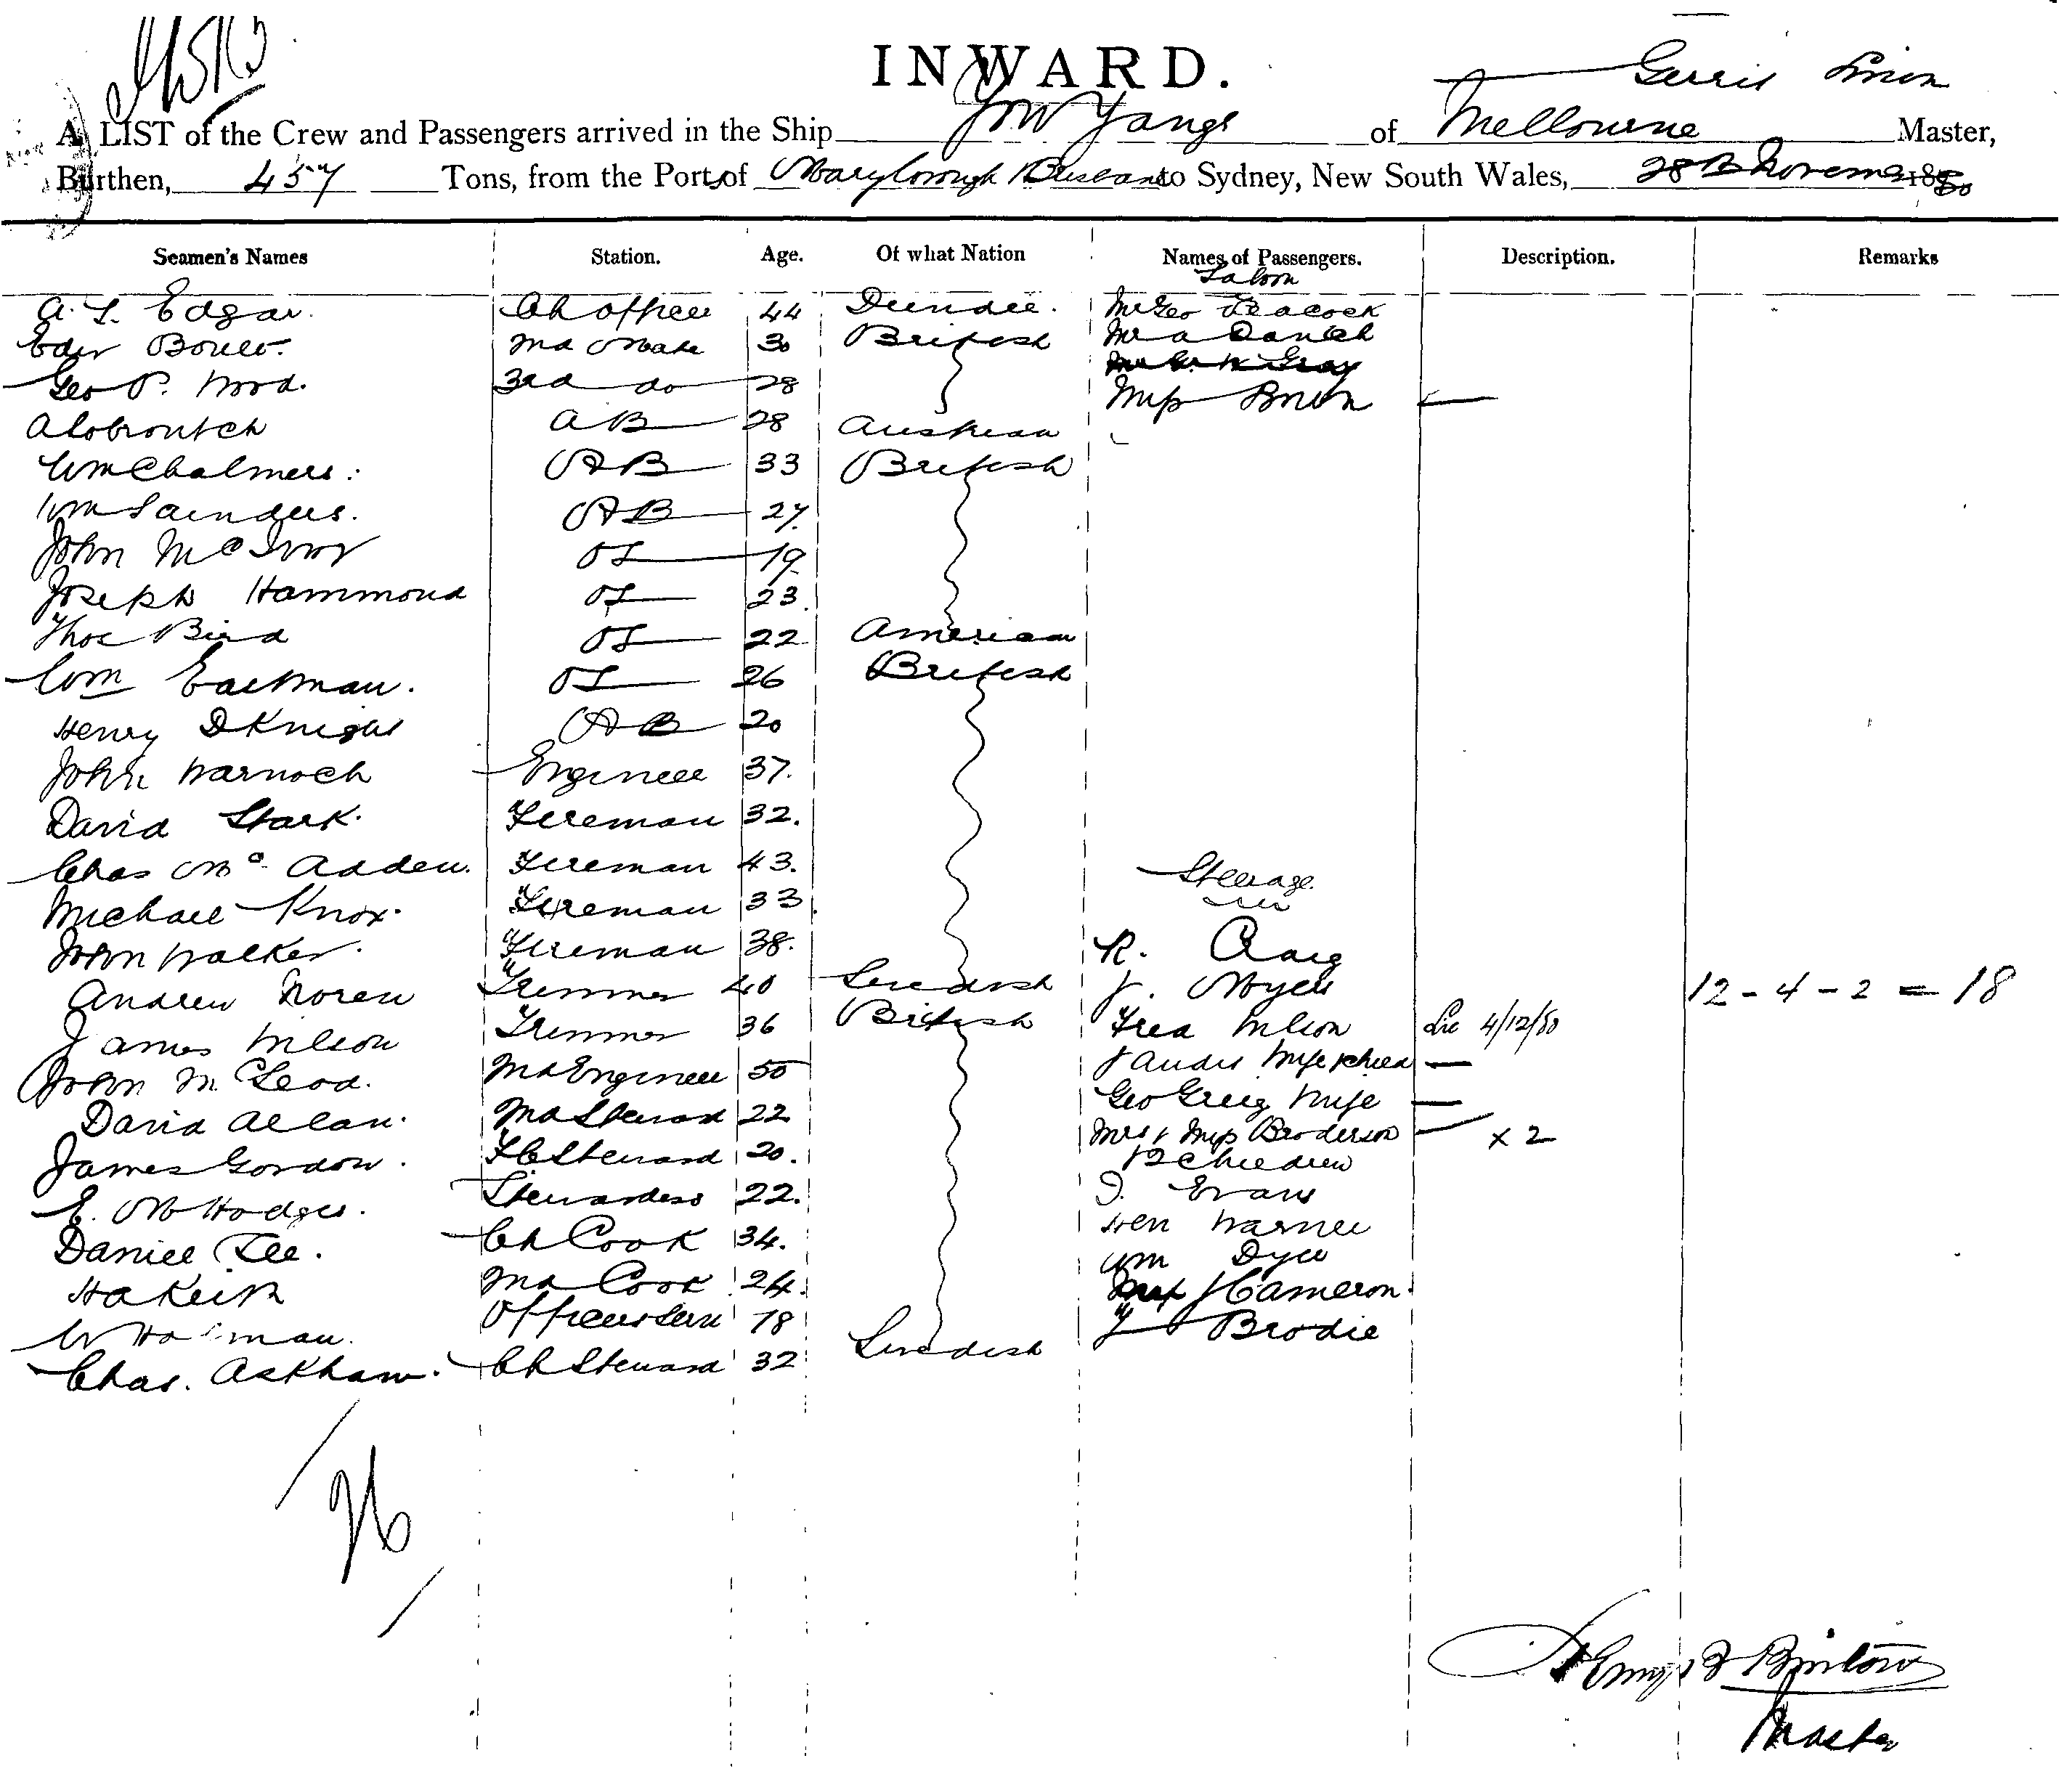 INWARD.
A LIST of the Crew and Passengers arrived in the Ship You Yangs of Melbourne Master,
Burthen, 457 Tons, from the Port of Maryborough Brisbane to Sydney, New South Wales, 28th November 1880
Seamen's Names Station. Age. Of what Nation Names of Passengers. Description. Remarks
Saloon
A. L. Edgar. Ch officer 44 Dundee. Mr Geo Peacock
2nd Mate 30 British Mr A
Geo P. Wood. 3rd do 28
AB 28 Austrian Miss
Wm Chalmers. AB 33 British
Wm Saunders. AB 27
John OS 19
Joseph Hammond OS 23
Thos Bird OS 22 American
Wm Eastman. OS 26 British
Henry D Knight AB 20
John Warnoch Engineer 37.
David Stark. Fireman 32.
Chas Mc Adden. Fireman 43.
Steerage
Michael Knox. Fireman 33
John Walker. Fireman 38. R. Craig
Andrew Noren Trimmer 40 Swedish J. Myers 12 - 4 - 2 = 18
James Wilson Trimmer 36 British Fred Wilson 4/12/80
John McLeod. 2nd Engineer 50 wife & child
David Allan. 2nd Steward 22 Geo Greig wife
James Gordon. Steward 20. Mrs & Miss Broderson x 2
& 2 children
E. M Hodges. Stewardess 22. Evans
Daniel Lee. Ch Cook 34. Hen Warner
Wm Dyer
H Keith 2nd Cook 24. J Cameron.
W Officers Serv 18 Brodie
Chas. Askham. Ch Steward 32 Swedish
26
Master